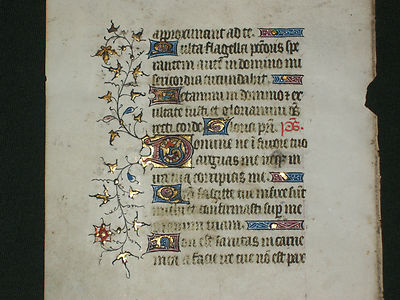 approximant ad te.
Multa flagella pctoris spe
rantem aut̄ in domino mi
sericordia circundabit.
Letamini in domino ⁊ ex
ultate iusti et gloriamini om̄s
recti corde Gloria pri. ps.
Domine ne ī furore tuo
arguas me neq; in
ira tua corripias me.
Qm̄ sagitte tue infixe sunt
michi et confirmasti sup me
manum tuam.
Non est sanitas in carne
mea a facie ire tue nō est pax